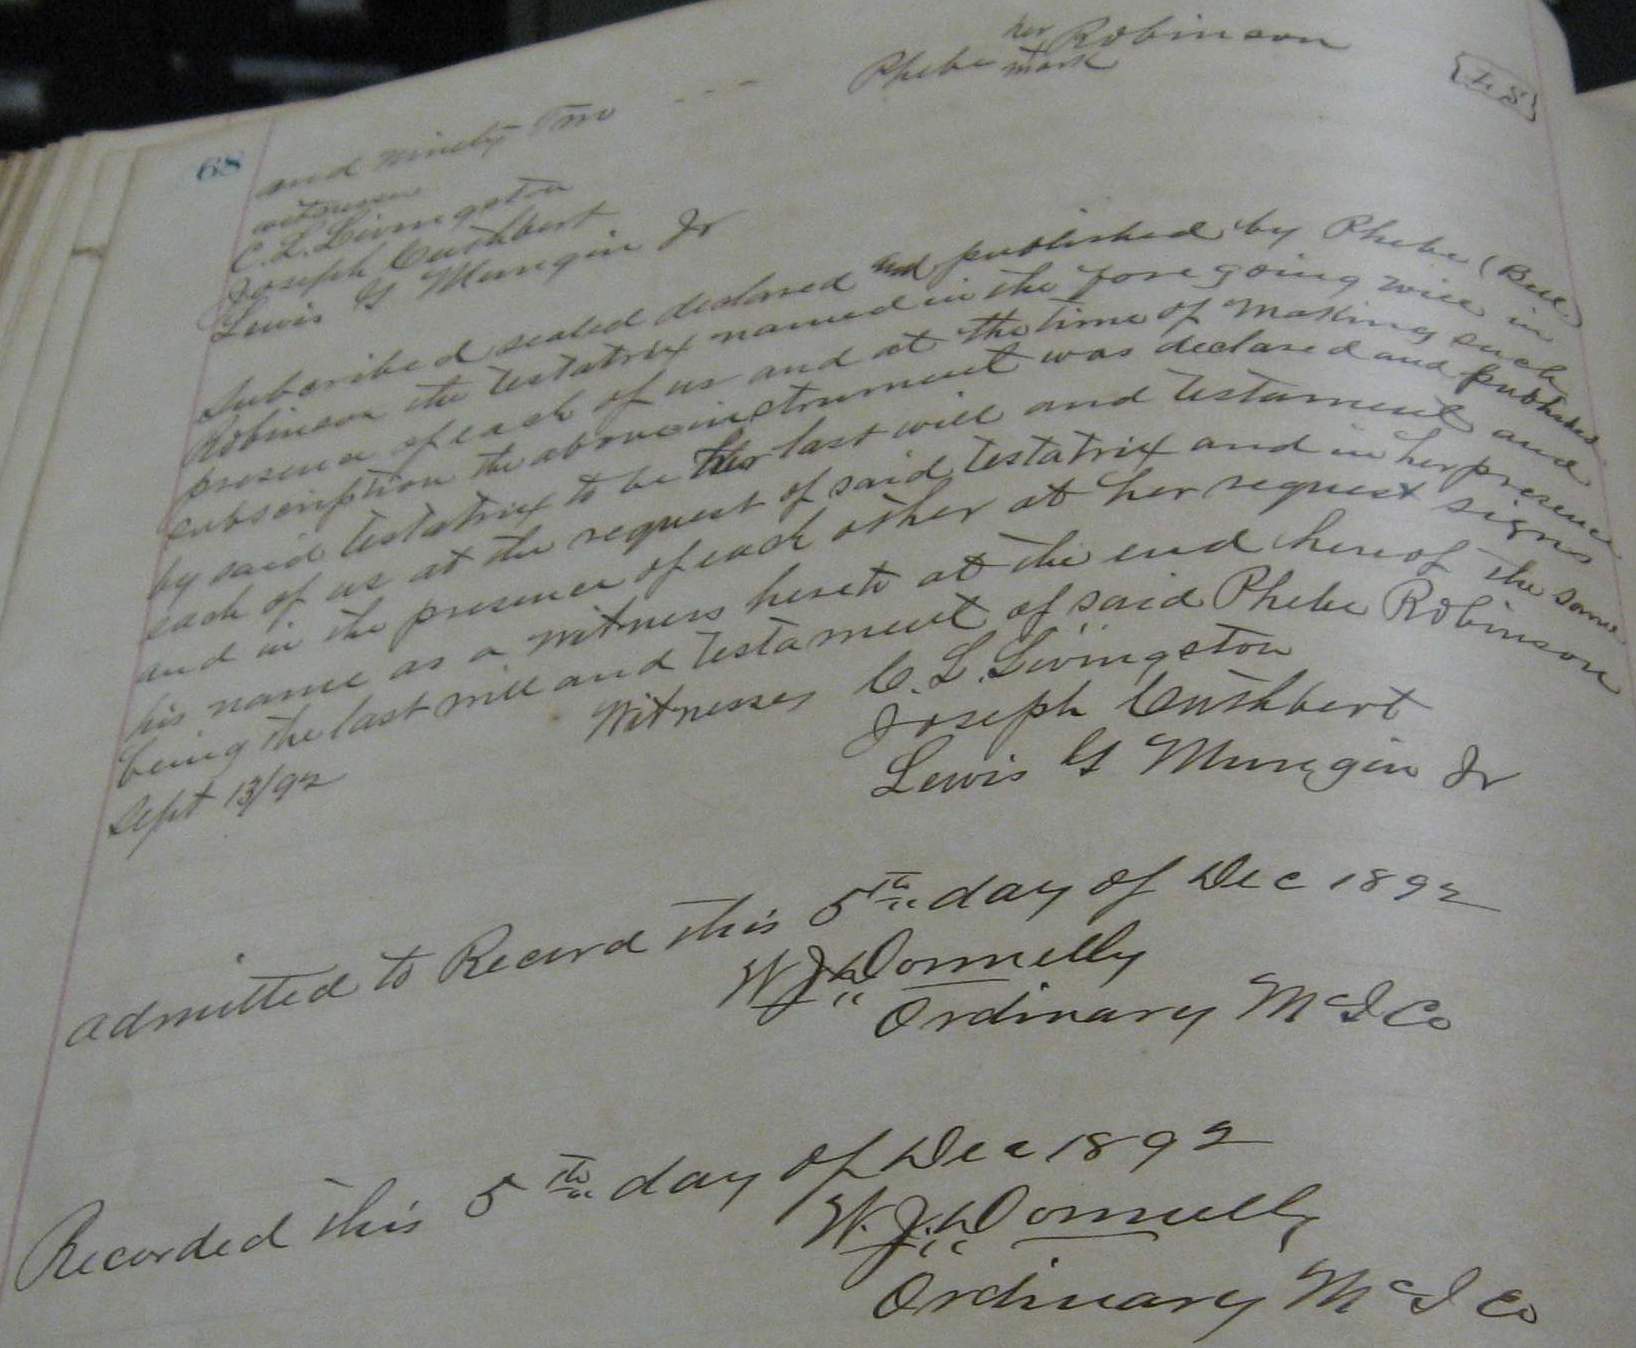 68
her
Phebe Robinson
mark
and ninety Two - - -
witnesses
C. L. Livingston
Joseph Cuthbert
Lewis G Mungin Jr
Subscribed sealed declared and published by Phebe (Bell)
Robinson the testatrix named in the foregoing will in
presence of each of us and at the time of making such
subscription the above instrument was declared and published
by said testatrix to be her last will and testament and
each of us at the request of said testatrix and in her presence
and in the presence of each other at her request signs
his name as a witness hereto at the end hereof the same
being the last will and testament of said Phebe Robinson
Sept 13/92
Witnesses C. L. Livingston
Joseph Cuthbert
Lewis G Mungin Jr
admitted to Record this 5th day of Dec 1892
W. J. Donnelly
Ordinary McI Co
Recorded this 5th day of Dec 1892
W. J. Donnelly
Ordinary McI Co